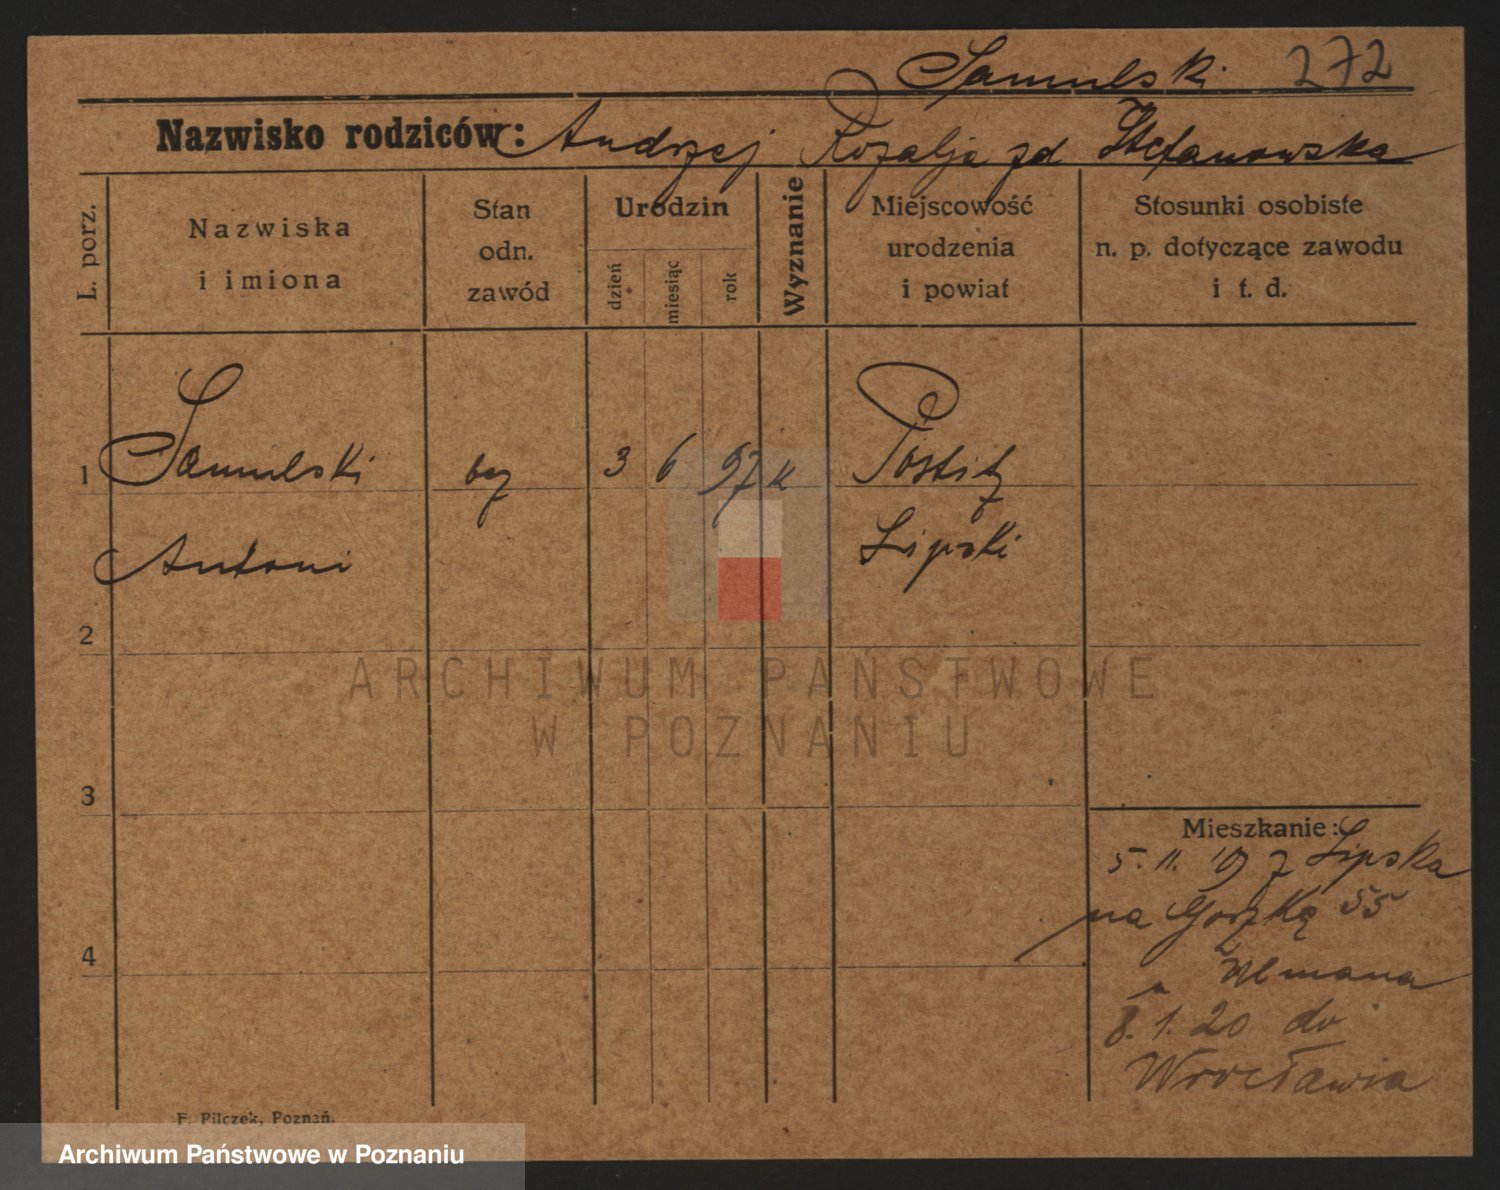 Samulski 272
Nazwisko rodziców: Andrzej Rozalja zd Stefanowska
L. porz.
Nazwiska
i imiona
Stan
odn.
zawód
Urodzin
dzień
miesiąc
rok
Wyznanie
Miejscowość
urodzenia
i powiat
Stosunki osobiste
n. p. dotyczące zawodu
i t. d.
1 Samulski bez 3 6 97 k
Lipski
Antoni
2
3
4
Mieszkanie:
5. 11. 19 z Lipska
na Gorzką 55
u Ulmana
8. 1. 20 do
Wrocławia
F. Pilczek, Poznań.
ARCHIWUM PAŃSTWOWE
W POZNANIU
Archiwum Państwowe w Poznaniu